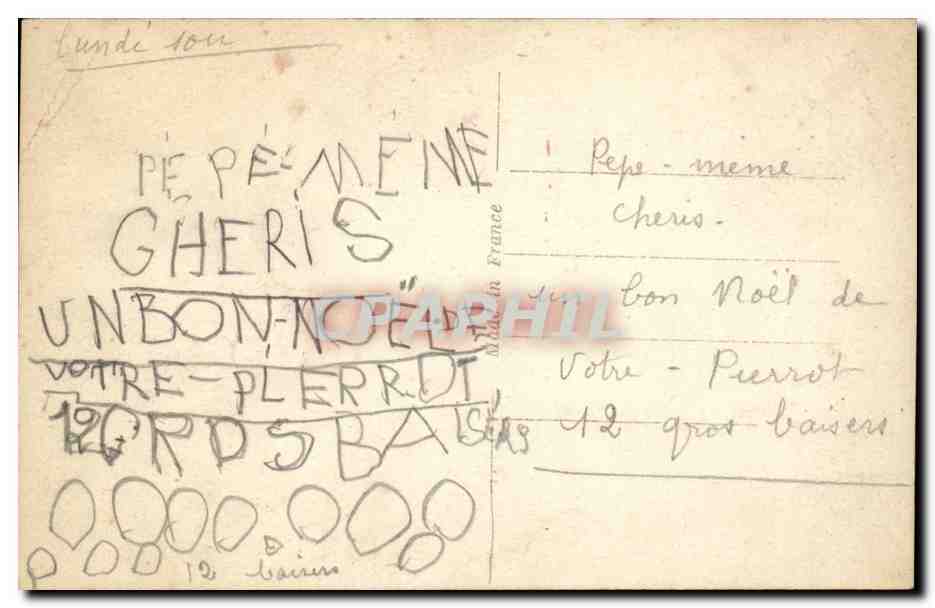 PÉPÉ-MÉMÉ
GHERIS
UN BON-NOËL-DE
VOTRE-PIERROT
12 GROS BAISERS
12 baisers
Made in France
Pepe - meme
cheris-
un bon Noël de
Votre - Pierrot
12 gros baisers
CPAPHIL